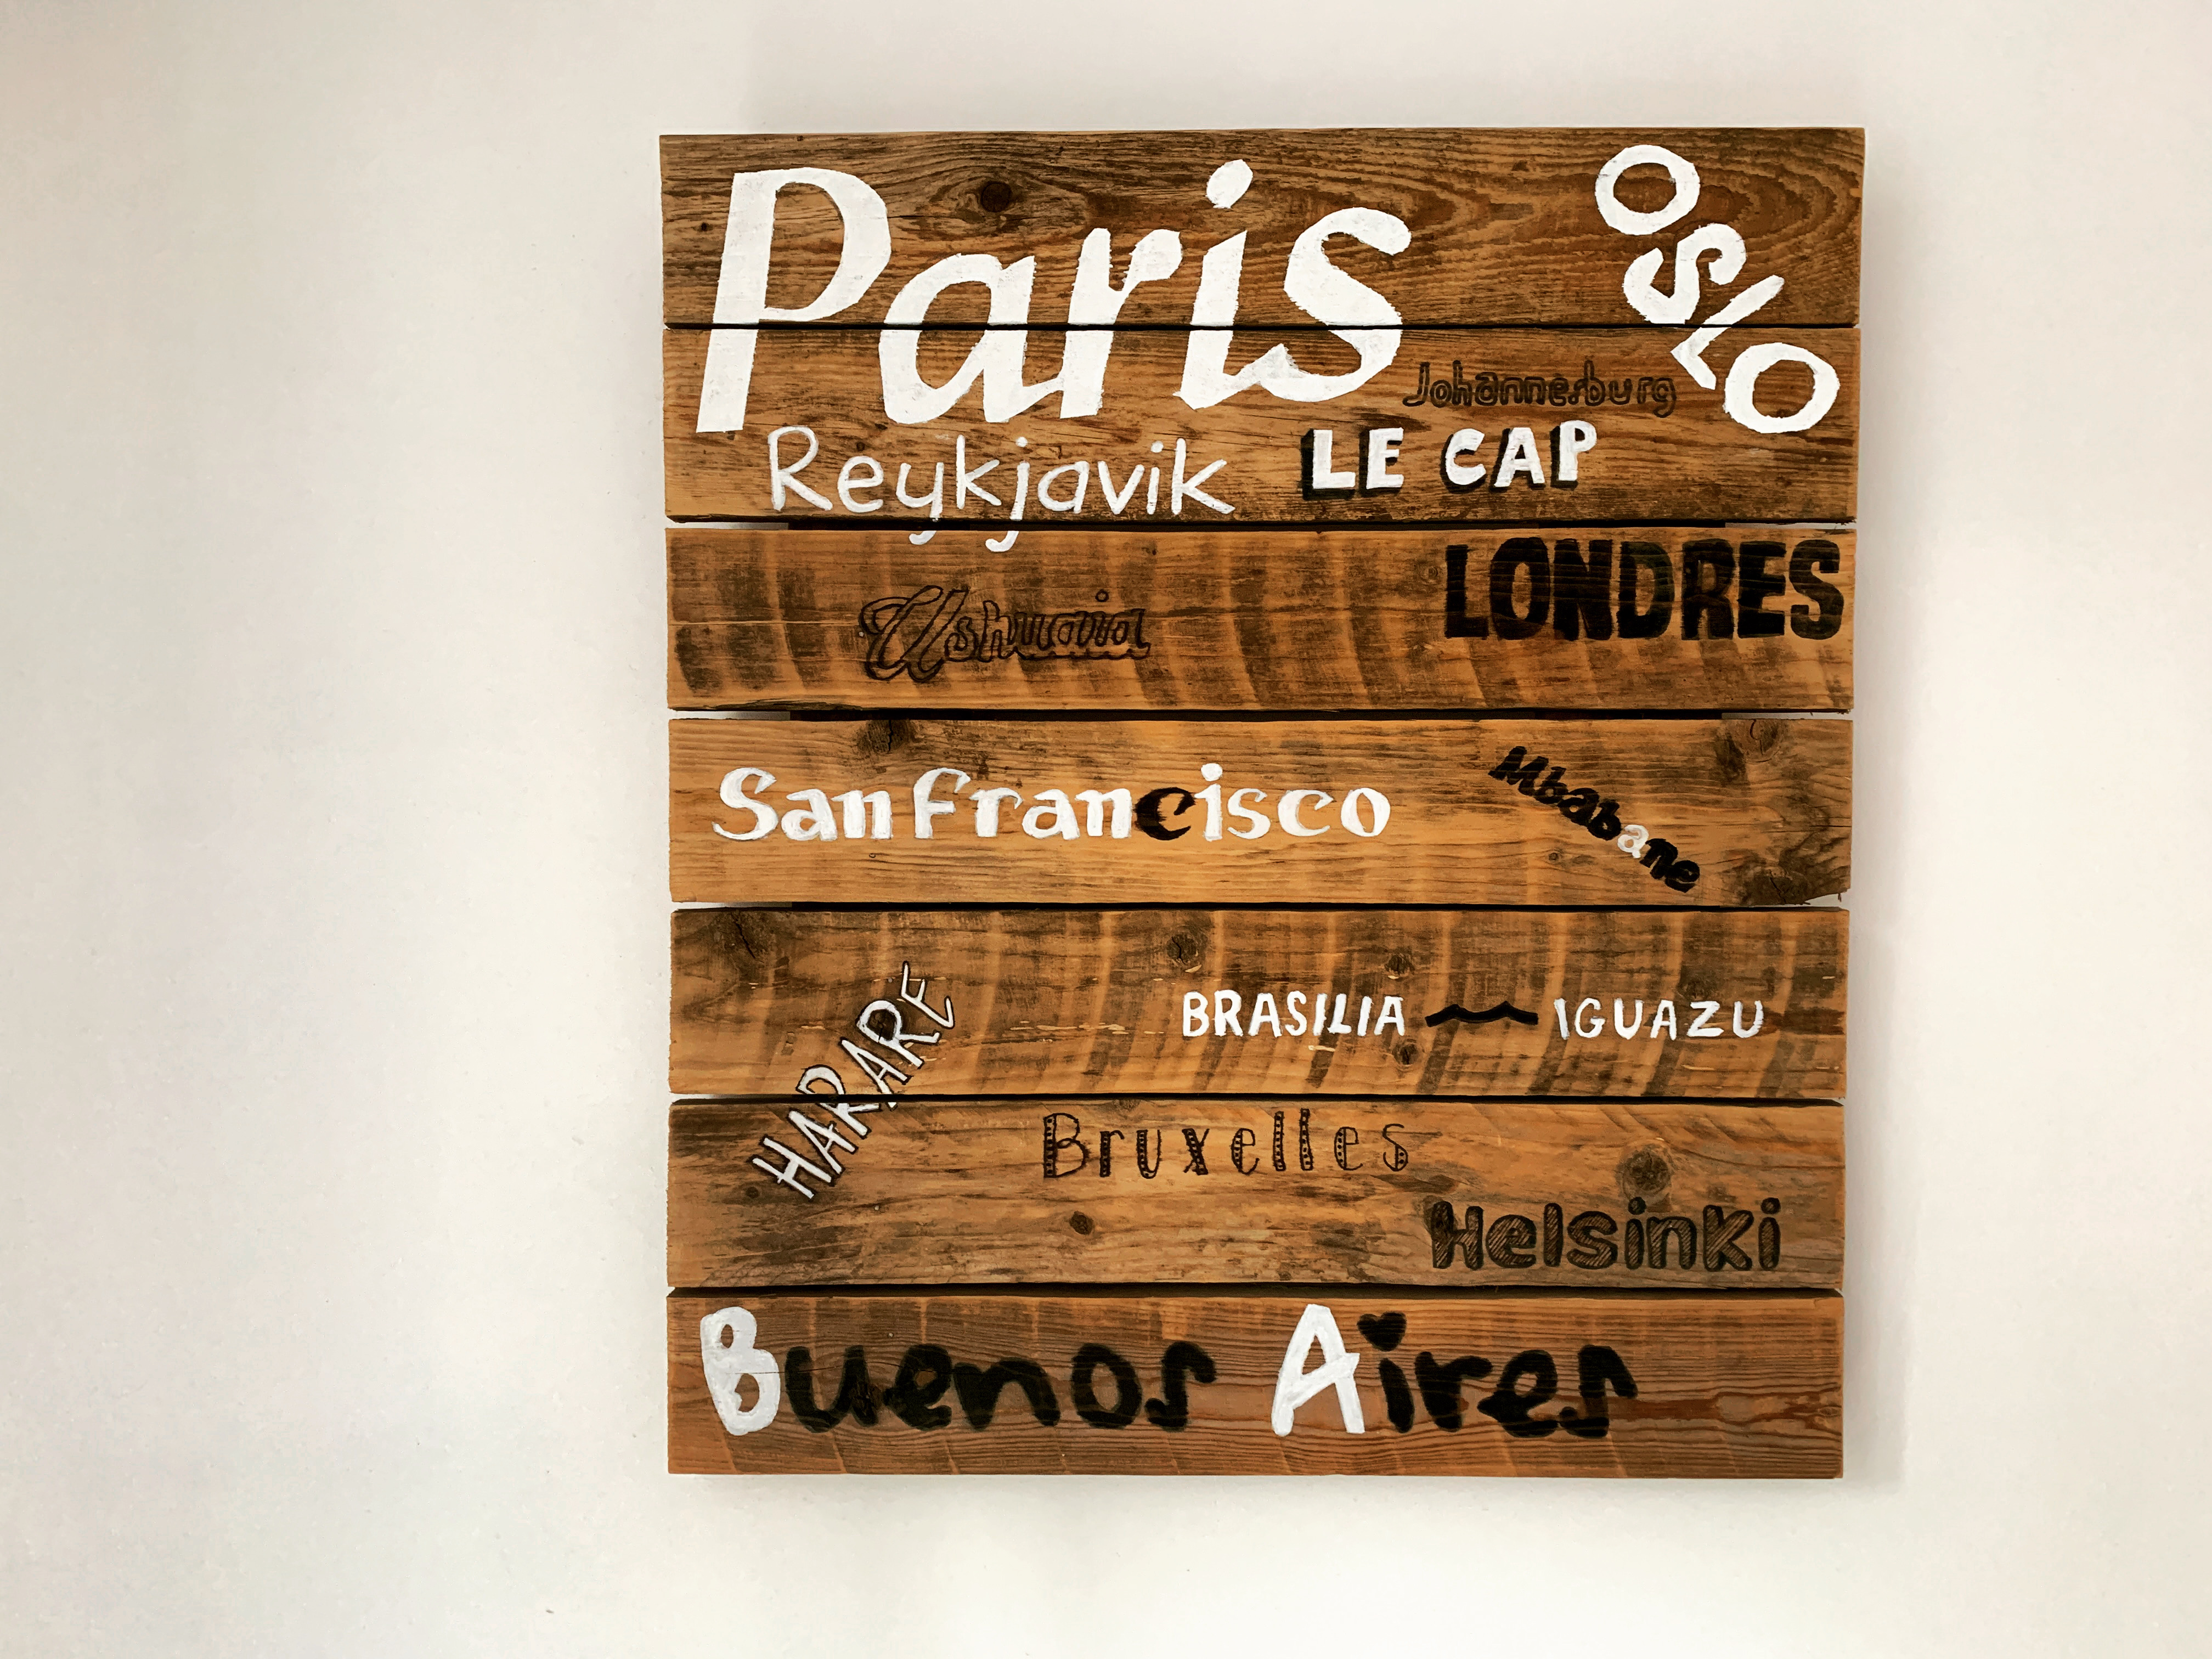 Paris
OSLO
Johannesburg
Reykjavik
LE CAP
LONDRES
Ushuaia
San Francisco
Mbabane
HARARE
BRASILIA
IGUAZU
Bruxelles
Helsinki
Buenos Aires